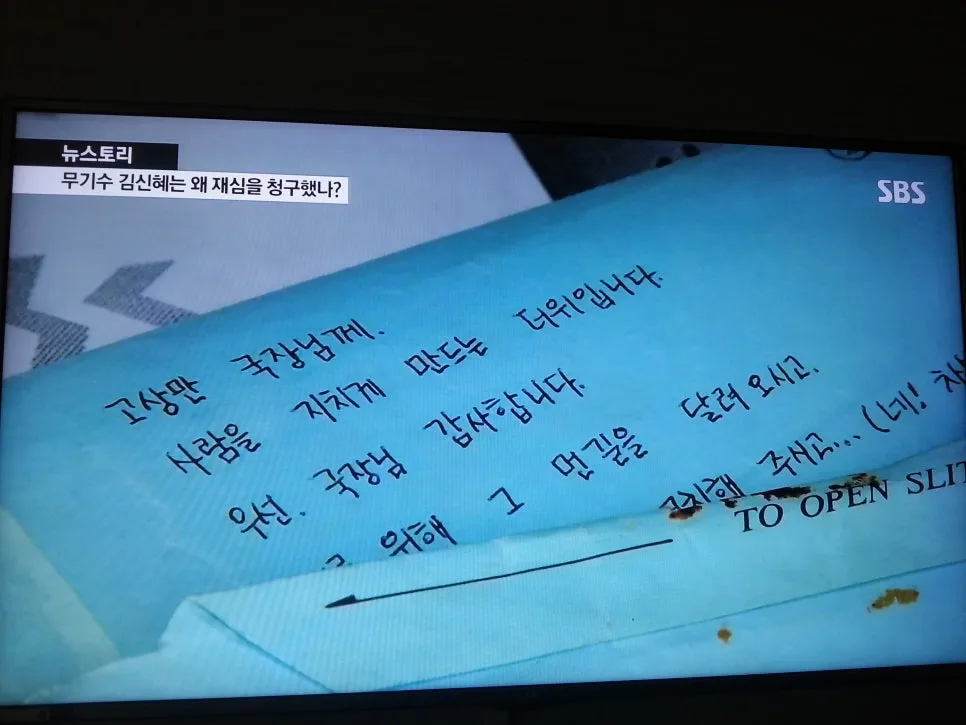 뉴스토리
무기수 김신혜는 왜 재심을 청구했나?
SBS
고상만 국장님께.
사람을 지치게 만드는 더위입니다.
우선. 국장님 감사합니다.
위해 그 먼길을 달려 오시고.
주시고... (네!
TO OPEN SLIT